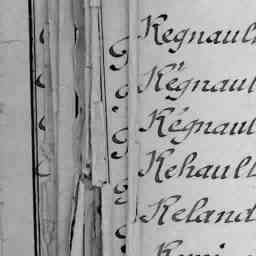 Regnaul
Régnaul
Régnaul
Rehault
Reland